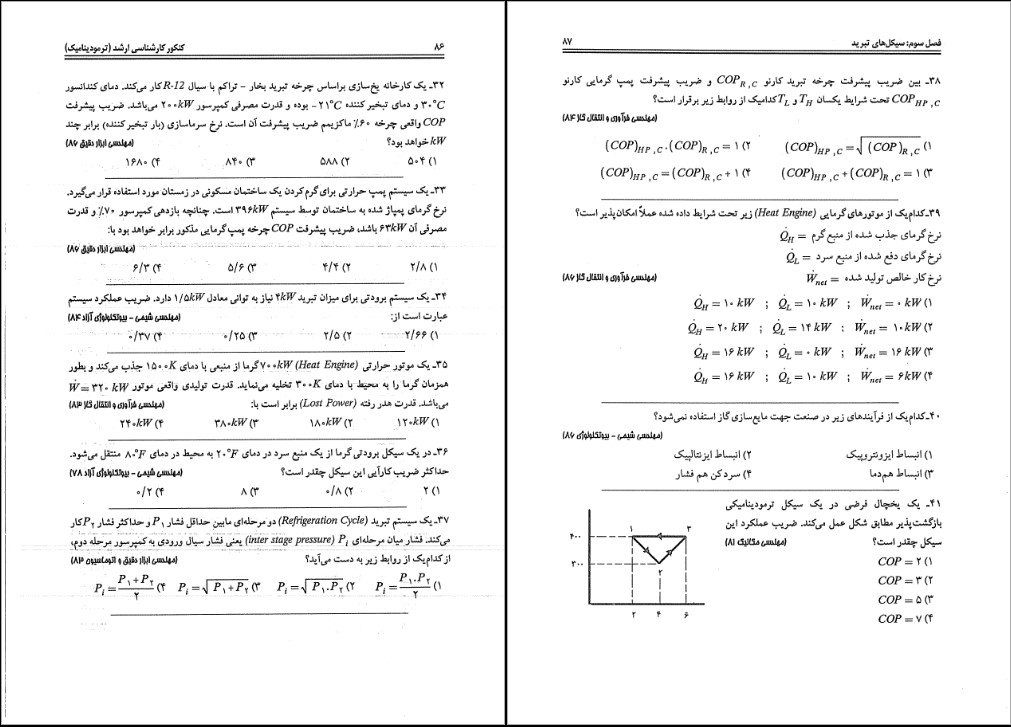 ۸۶
کنکور کارشناسی ارشد (ترمودینامیک)
۳۲ـ یک کارخانه یخ‌سازی براساس چرخه تبرید بخار - تراکم با سیال R-12 کار می‌کند. دمای کندانسور
۳۰°C و دمای تبخیر کننده ۲۱°C- بوده و قدرت مصرفی کمپرسور ۲۰۰kW می‌باشد. ضریب پیشرفت
COP واقعی چرخه ۶۰٪ ماکزیمم ضریب پیشرفت آن است. نرخ سرماسازی (بار تبخیر کننده) برابر چند
kW خواهد بود؟ (مهندسی ابزار دقیق ۸۶)
۱) ۵۰۴ ۲) ۵۸۸ ۳) ۸۴۰ ۴) ۱۶۸۰
۳۳ـ یک سیستم پمپ حرارتی برای گرم کردن یک ساختمان مسکونی در زمستان مورد استفاده قرار می‌گیرد.
نرخ گرمای پمپاژ شده به ساختمان توسط سیستم ۳۹۶kW است. چنانچه بازدهی کمپرسور ۷۰٪ و قدرت
مصرفی آن ۶۳kW باشد، ضریب پیشرفت COP چرخه پمپ گرمایی مذکور برابر خواهد بود با:
(مهندسی ابزار دقیق ۸۶)
۱) ۲/۸ ۲) ۴/۴ ۳) ۵/۶ ۴) ۶/۳
۳۴ـ یک سیستم برودتی برای میزان تبرید ۴kW نیاز به توانی معادل ۱/۵kW دارد. ضریب عملکرد سیستم
عبارت است از: (مهندسی شیمی - بیوتکنولوژی آزاد ۸۴)
۱) ۲/۶۶ ۲) ۲/۵ ۳) ۰/۲۵ ۴) ۰/۳۷
۳۵ـ یک موتور حرارتی (Heat Engine) ۷۰۰kW گرما از منبعی با دمای ۱۵۰۰K جذب می‌کند و بطور
همزمان گرما را به محیط با دمای ۳۰۰K تخلیه می‌نماید. قدرت تولیدی واقعی موتور Ẇ = ۳۲۰ kW
می‌باشد. قدرت هدر رفته (Lost Power) برابر است با: (مهندسی فرآوری و انتقال گاز ۸۳)
۱) ۱۲۰kW ۲) ۱۸۰kW ۳) ۳۸۰kW ۴) ۲۴۰kW
۳۶ـ در یک سیکل برودتی گرما از یک منبع سرد در دمای ۲۰°F به محیط در دمای ۸۰°F منتقل می‌شود.
حداکثر ضریب کارآیی این سیکل چقدر است؟ (مهندسی شیمی - بیوتکنولوژی آزاد ۷۸)
۱) ۲ ۲) ۰/۸ ۳) ۸ ۴) ۰/۲
۳۷ـ یک سیستم تبرید (Refrigeration Cycle) دو مرحله‌ای مابین حداقل فشار P۱ و حداکثر فشار P۲ کار
می‌کند. فشار میان مرحله‌ای Pi (inter stage pressure) یعنی فشار سیال ورودی به کمپرسور مرحله دوم،
از کدام یک از روابط زیر به دست می‌آید؟ (مهندسی ابزار دقیق و اتوماسیون ۸۳)
۱) Pi = P۱.P۲/۲ ۲) Pi = √P۱.P۲ ۳) Pi = √P۱+P۲ ۴) Pi = P۱+P۲/۲
فصل سوم: سیکل‌های تبرید
۸۷
۳۸ـ بین ضریب پیشرفت چرخه تبرید کارنو COPR,C و ضریب پیشرفت پمپ گرمایی کارنو
COPHP,C تحت شرایط یکسان TH و TL کدامیک از روابط زیر برقرار است؟
(مهندسی فرآوری و انتقال گاز ۸۴)
۱) (COP)HP,C = √(COP)R,C ۲) (COP)HP,C . (COP)R,C = ۱
۳) (COP)HP,C + (COP)R,C = ۱ ۴) (COP)HP,C = (COP)R,C + ۱
۳۹ـ کدام یک از موتورهای گرمایی (Heat Engine) زیر تحت شرایط داده شده عملاً امکان‌پذیر است؟
نرخ گرمای جذب شده از منبع گرم = Q̇H
نرخ گرمای دفع شده از منبع سرد = Q̇L
نرخ کار خالص تولید شده = Ẇnet (مهندسی فرآوری و انتقال گاز ۸۶)
۱) Q̇H = ۱۰ kW ; Q̇L = ۱۰ kW ; Ẇnet = ۰ kW
۲) Q̇H = ۲۰ kW ; Q̇L = ۱۴ kW ; Ẇnet = ۱۰kW
۳) Q̇H = ۱۶ kW ; Q̇L = ۰ kW ; Ẇnet = ۱۶ kW
۴) Q̇H = ۱۶ kW ; Q̇L = ۱۰ kW ; Ẇnet = ۶kW
۴۰ـ کدام یک از فرآیندهای زیر در صنعت جهت مایع‌سازی گاز استفاده نمی‌شود؟
(مهندسی شیمی - بیوتکنولوژی ۸۶)
۱) انبساط ایزونتروپیک ۲) انبساط ایزنتالپیک
۳) انبساط هم‌دما ۴) سرد کن هم فشار
۴۱ـ یک یخچال فرضی در یک سیکل ترمودینامیکی
بازگشت‌پذیر مطابق شکل عمل می‌کند. ضریب عملکرد این
سیکل چقدر است؟ (مهندسی مکانیک ۸۱)
۱) COP = ۲
۲) COP = ۳
۳) COP = ۵
۴) COP = ۷
۱ ۳
۴۰۰
۳۰۰
۲
۲ ۴ ۶